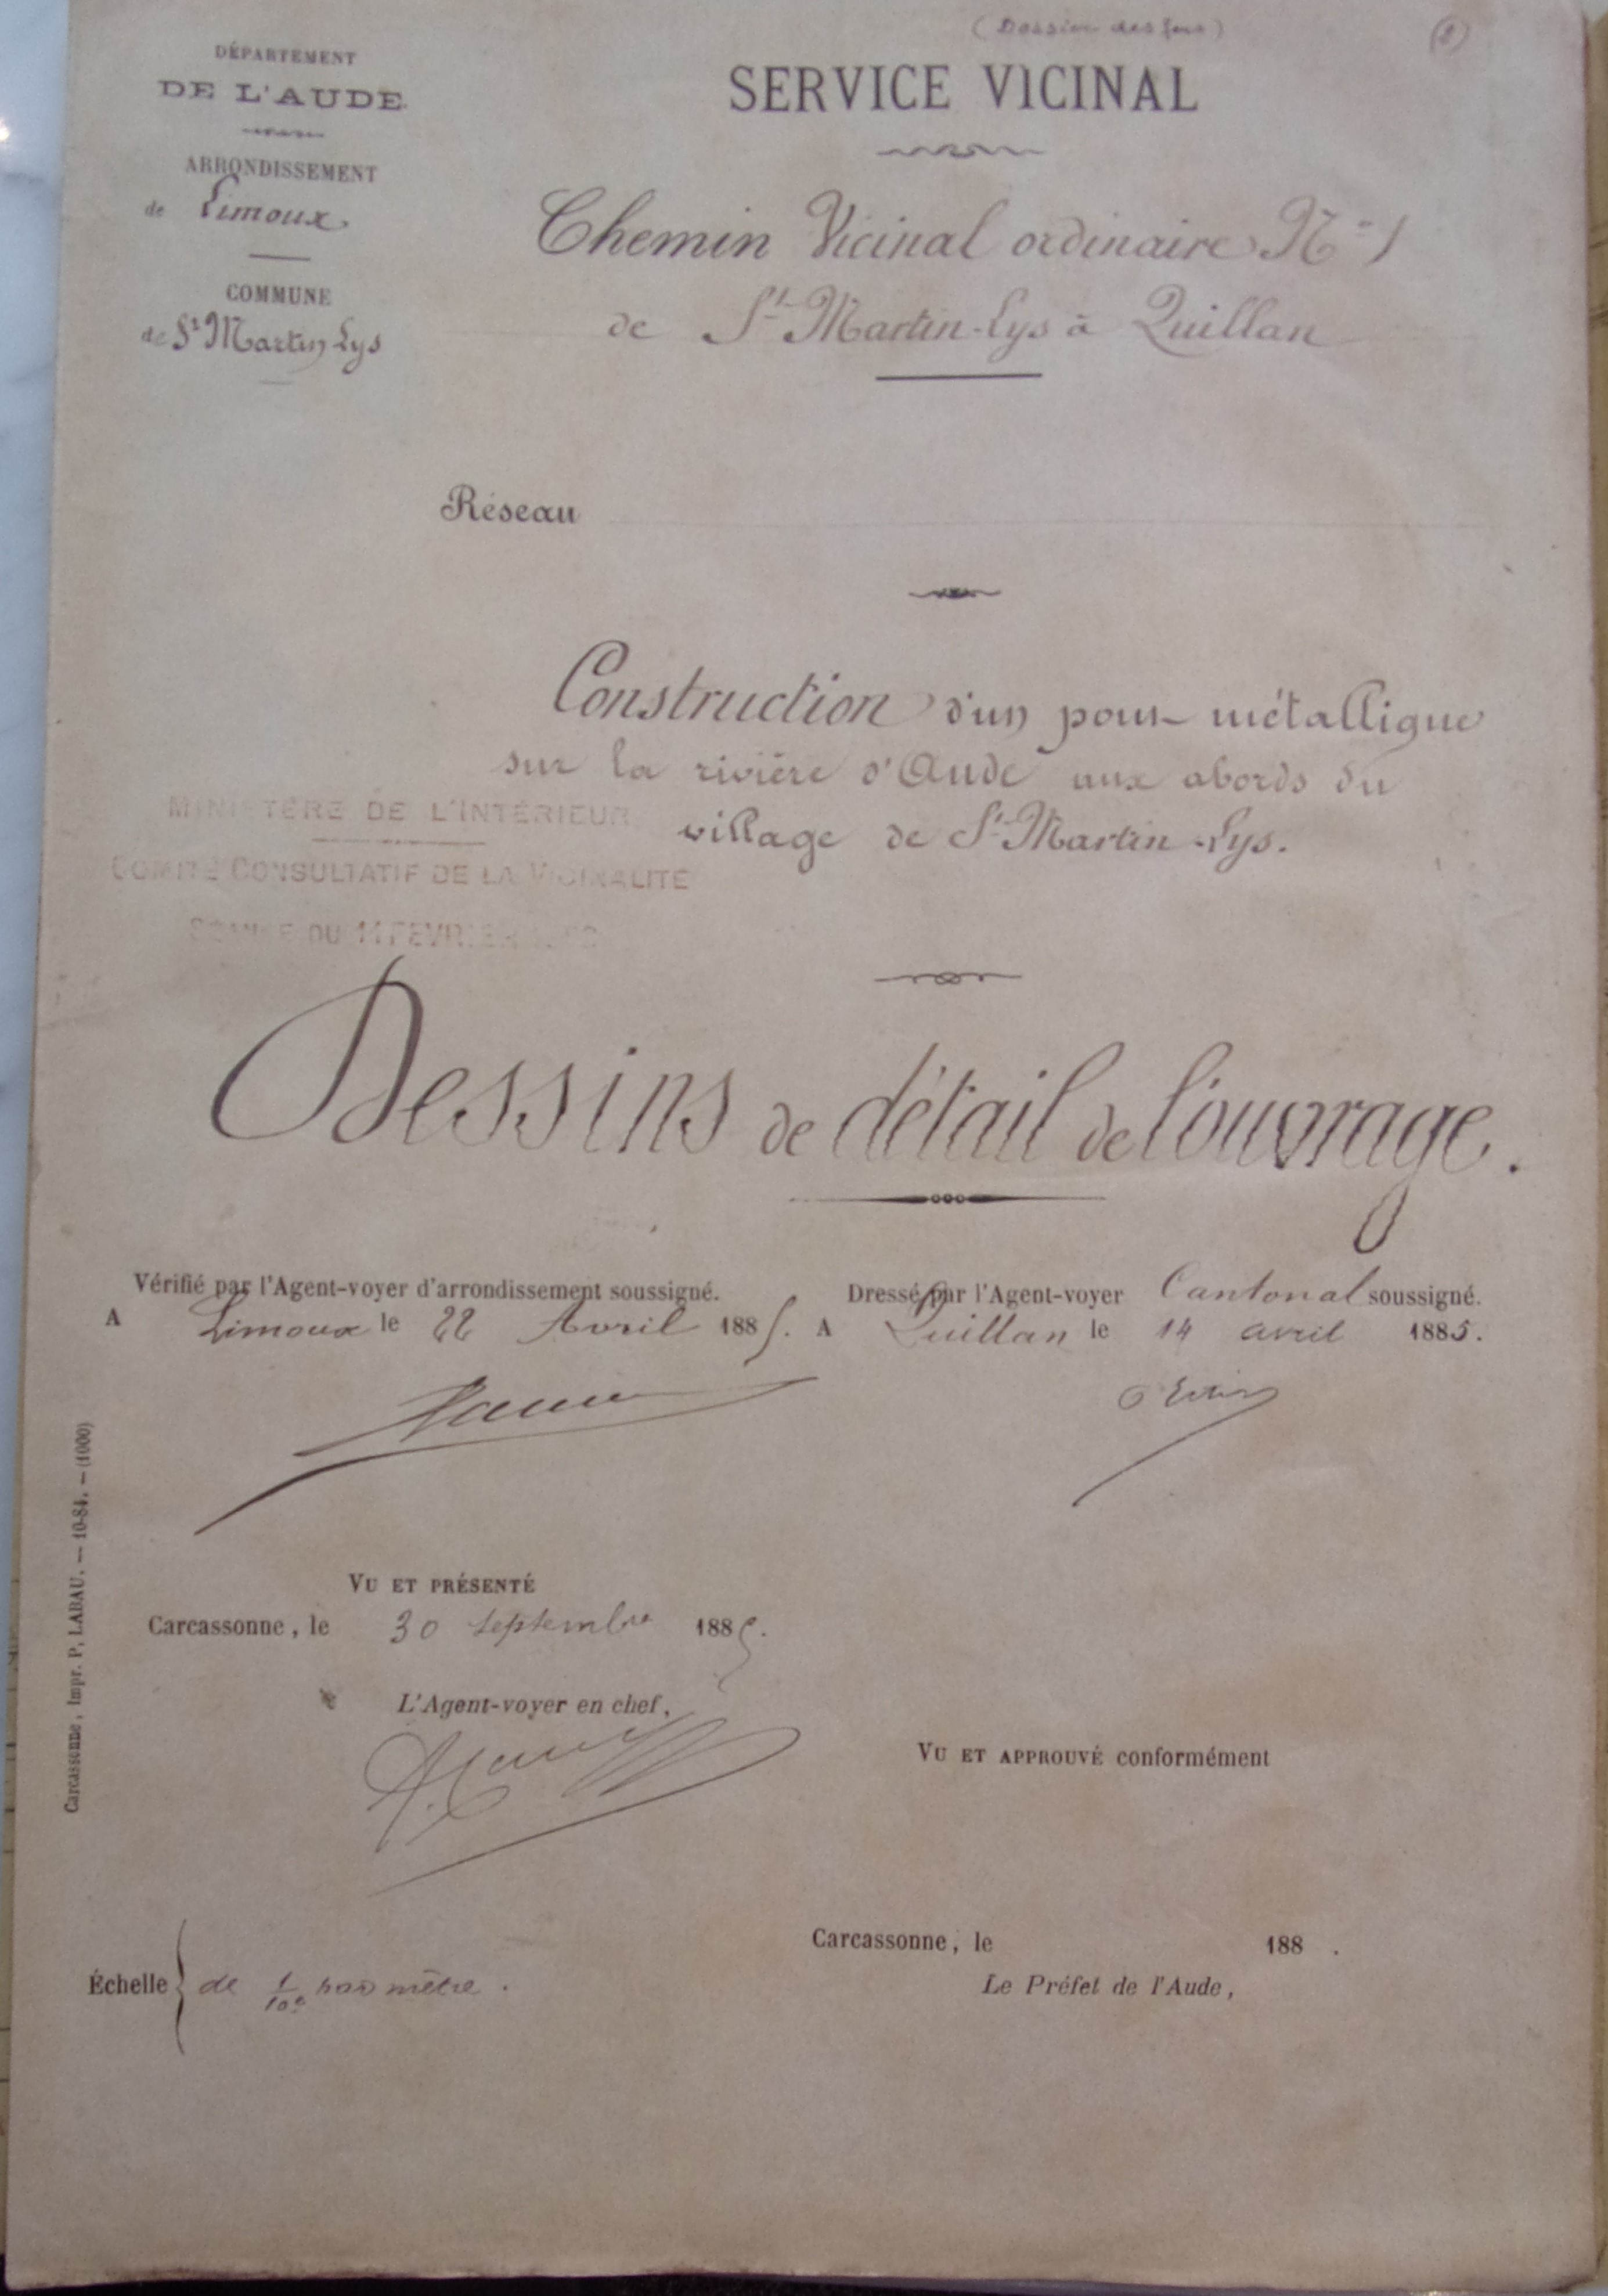 (Dossier des fers)
DÉPARTEMENT
DE L'AUDE
ARRONDISSEMENT
de Limoux
COMMUNE
de St Martin-Lys
SERVICE VICINAL
Chemin Vicinal ordinaire No 1
de St Martin-Lys à Quillan
Réseau
Construction d'un pont métallique
sur la rivière d'Aude aux abords du
village de St Martin-Lys.
MINISTÈRE DE L'INTÉRIEUR
COMITÉ CONSULTATIF DE LA VICINALITÉ
SÉANCE DU 11 FÉVRIER
Dessins de détail de l'ouvrage.
Vérifié par l'Agent-voyer d'arrondissement soussigné.
A Limoux le 22 Avril 1885.
Dressé par l'Agent-voyer Cantonal soussigné.
A Quillan le 14 avril 1885.
VU ET PRÉSENTÉ
Carcassonne, le 30 septembre 1885.
L'Agent-voyer en chef,
VU ET APPROUVÉ conformément
Carcassonne, le 188 .
Le Préfet de l'Aude,
Échelle de 1/10e par mètre.
Carcassonne, Impr. P. LABAU. — 10-84. — (1000)